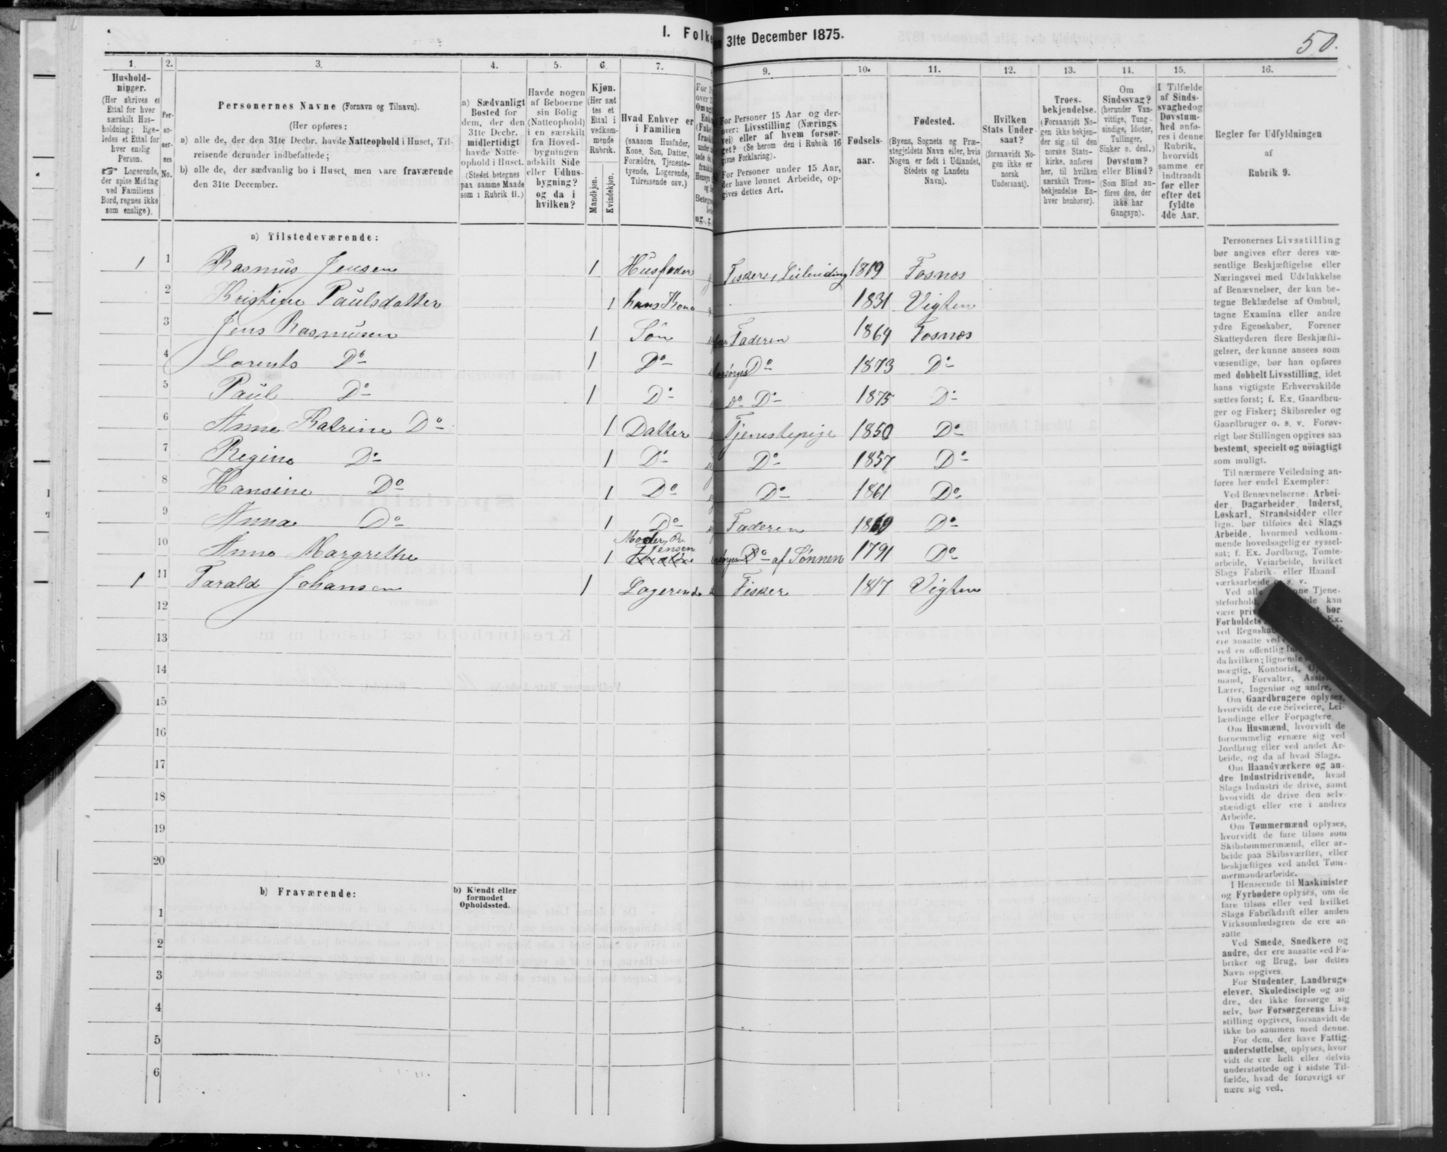 I. Folke
31te December 1875.
50.
1.
2.
3.
4.
5.
6.
7.
9.
10.
11.
12.
13.
14.
15.
16.
Hushold-
ninger.
(Her skrives et
Ettal for hver
særskilt Hus-
holdning; Lige-
ledes et Ettal for
hver enslig
Person.
☞ Logerende,
der spise Middag
ved Familiens
Bord, regnes ikke
som enslige).
Per-
so-
ner-
nes
No.
Personernes Navne (Fornavn og Tilnavn).
(Her opføres:
a) alle de, der den 31te Decbr. havde Natteophold i Huset, Til-
reisende derunder indbefattede;
b) alle de, der sædvanlig bo i Huset, men vare fraværende
den 31te December.
a) Sædvanligt
Bosted for
dem, der den
31te Decbr.
midlertidigt
havde Natte-
ophold i Huset.
(Stedet betegnes
paa samme Maade
som i Rubrik 11.)
Havde nogen
af Beboerne
sin Bolig
(Natteophold)
i en særskilt
fra Hoved-
bygningen
adskilt Side
eller Udhus-
bygning?
og da i
hvilken?
Kjøn.
(Her sæt-
tes et
Ettal i
vedkom-
mende
Rubrik.
Mandkjøn.
Kvindekjøn.
Hvad Enhver er
i Familien
(saasom Husfader,
Kone, Søn, Datter,
Forældre, Tjeneste-
tyende, Logerende,
Tilreisende osv.)
For Personer 15 Aar og der-
over: Livsstilling (Nærings-
vei) eller af hvem forsør-
get? (Se herom den i Rubrik 16
givne Forklaring).
For Personer under 15 Aar,
der have lønnet Arbeide, op-
gives dettes Art.
Fødsels-
aar.
Fødested.
(Byens, Sognets og Præ-
stegjeldets Navn eller, hvis
Nogen er født i Udlandet,
Stedets og Landets
Navn).
Hvilken
Stats Under-
saat?
(foraanavidt No-
gen ikke er
norsk
Undersaat).
Troes-
bekjendelse.
(Forsaavidt No-
gen ikke bekjen-
der sig til den
norske Stats-
kirke, anføres
her, til hvilken
særskilt Troes-
bekjendelse En-
hver henhører).
Om
Sindssvag?
(herunder Van-
vittige, Tung-
sindige, Idioter,
Tullinger,
Sinker o. desl.)
Døvstum?
eller Blind?
(Som Blind an-
føres den, der
ikke har
Gangsyn).
I Tilfælde
af Sinds-
svaghed og
Døvstum-
hed anfø-
res i denne
Rubrik,
hvorvidt
samme er
indtraadt
før eller
efter det
fyldte
4de Aar.
Regler for Udfyldningen
af
Rubrik 9.
a) Tilstedeværende:
1 1 Rasmus Jensen 1 Husfader Fisker, Leilending 1819 Fosnes
2 Kristine Paulsdatter 1 hans Kone 1831 Vigten
3 Jens Rasmusen 1 Søn Faderen 1869 Fosnes
4 Lorents Do 1 Do Do 1873 Do
5 Paul Do 1 Do Do Do 1875 Do
6 Anne Katrine Do 1 Datter Tjenestepige 1850 Do
7 Regine Do 1 Do Do 1857 Do
8 Hansine Do 1 Do Do 1861 Do
9 Anna Do 1 Do Faderen Do
10 Anne Margrethe 1 Moder Jensen Do af Sønnen 1791 Do
1 11 Tarald Johansen 1 Logerende Fisker 1817 Vigten
12
13
14
15
16
17
18
19
20
b) Fraværende:
b) Kjendt eller
formodet
Opholdssted.
1
2
3
4
5
6
Personernes Livsstilling
bør angives efter deres væ-
sentlige Beskjæftigelse eller
Næringsvei med Udelukkelse
af Benævnelser, der kun be-
tegne Beklædelse af Ombud,
tagne Examina eller andre
ydre Egenskaber. Forener
Skatteyderen flere Beskjæfti-
gelser, der kunne ansees som
væsentlige, bør han opføres
med dobbelt Livsstilling, idet
hans vigtigste Erhvervskilde
sættes først; f. Ex. Gaardbru-
ger og Fisker; Skibsreder og
Gaardbruger o. s. v. Forøv-
rigt bør Stillingen opgives saa
bestemt, specielt og nøiagtigt
som muligt.
Til nærmere Veiledning an-
føres her endel Exempler:
Ved Benævnelserne: Arbei-
der, Dagarbeider, Inderst,
Løskarl, Strandsidder eller
lign. bør tilføies det Slags
Arbeide, hvormed vedkom-
mende hovedsagelig er syssel-
sat; f. Ex. Jordbrug, Tomte-
arbeide, Veiarbeide, hvilket
Slags Fabrik- eller Haand-
værksarbeide o. s. v.
Om Gaardbrugere oplyses,
hvorvidt de ere Selveiere, Lei-
lændinge eller Forpagtere.
Om Husmænd, hvorvidt de
fornemmelig ernære sig ved
Jordbrug eller ved andet Ar-
beide, og da af hvad Slags.
Om Haandværkere og an-
dre Industridrivende, hvad
Slags Industri de drive, samt
hvorvidt de drive den selv-
stændigt eller ere i andres
Arbeide.
Om Tømmermænd oplyses,
hvorvidt de fare tilsøs som
Skibstømmermænd, eller ar-
beide paa Skibsværfter, eller
beskjæftiges ved andet Tøm-
mermandsarbeide.
I Henseende til Maskinister
og Fyrbødere oplyses, om de
fare tilsøs eller ved hvilket
Slags Fabrikdrift eller anden
Virksomhedsgren de ere an-
satte.
Ved Smede, Snedkere og
andre, der ere ansatte ved Fa-
briker og Brug, bør dettes
Navn opgives.
For Studenter, Landbrugs-
elever, Skoledisciple og an-
dre, der ikke forsørge sig
selv, bør Forsørgerens Livs-
stilling opgives, forsaavidt de
ikke bo sammen med denne.
For dem, der have Fattig-
understøttelse, oplyses, hvor-
vidt de ere helt eller delvis
understøttede og i sidste Til-
fælde, hvad de forøvrigt er-
nære sig ved.